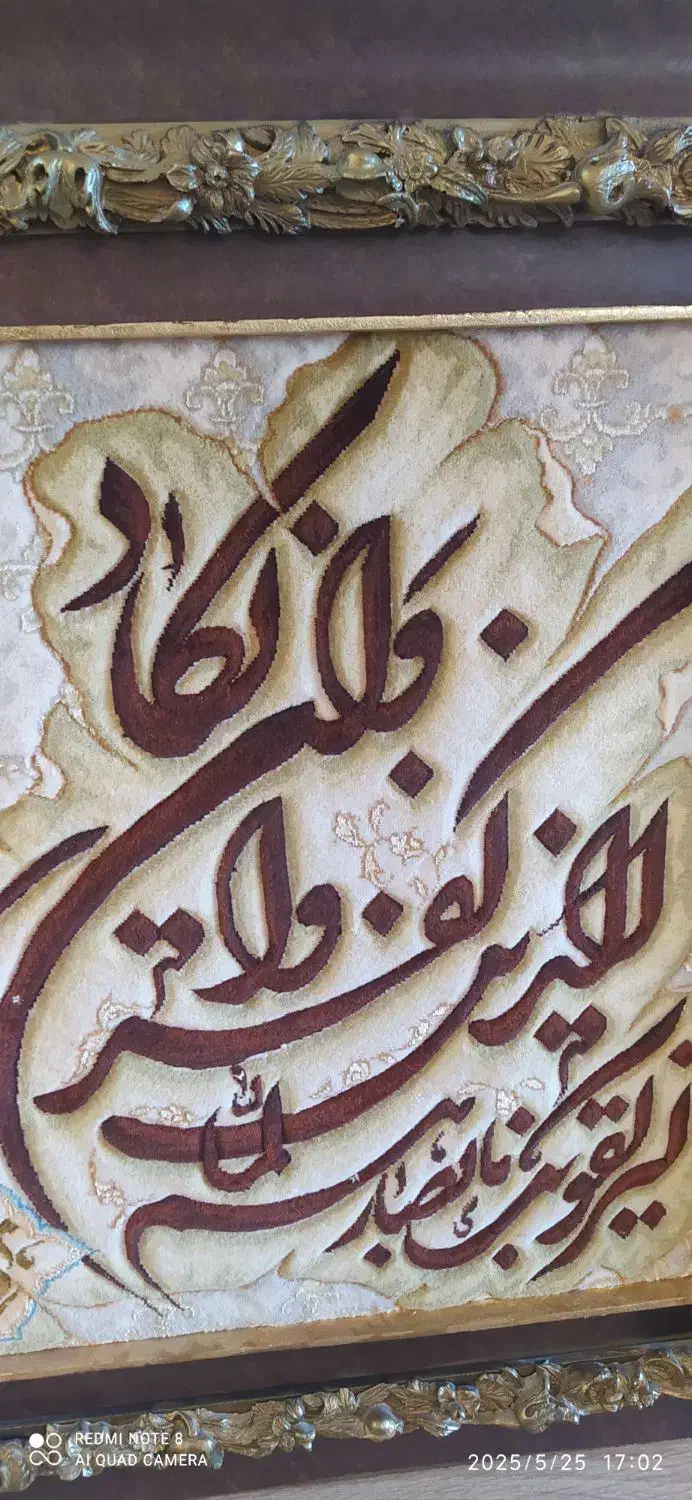 وان یکاد
الذین کفروا
لیزلقونک بابصارهم
لما
REDMI NOTE 8
AI QUAD CAMERA
2025/5/25 17:02